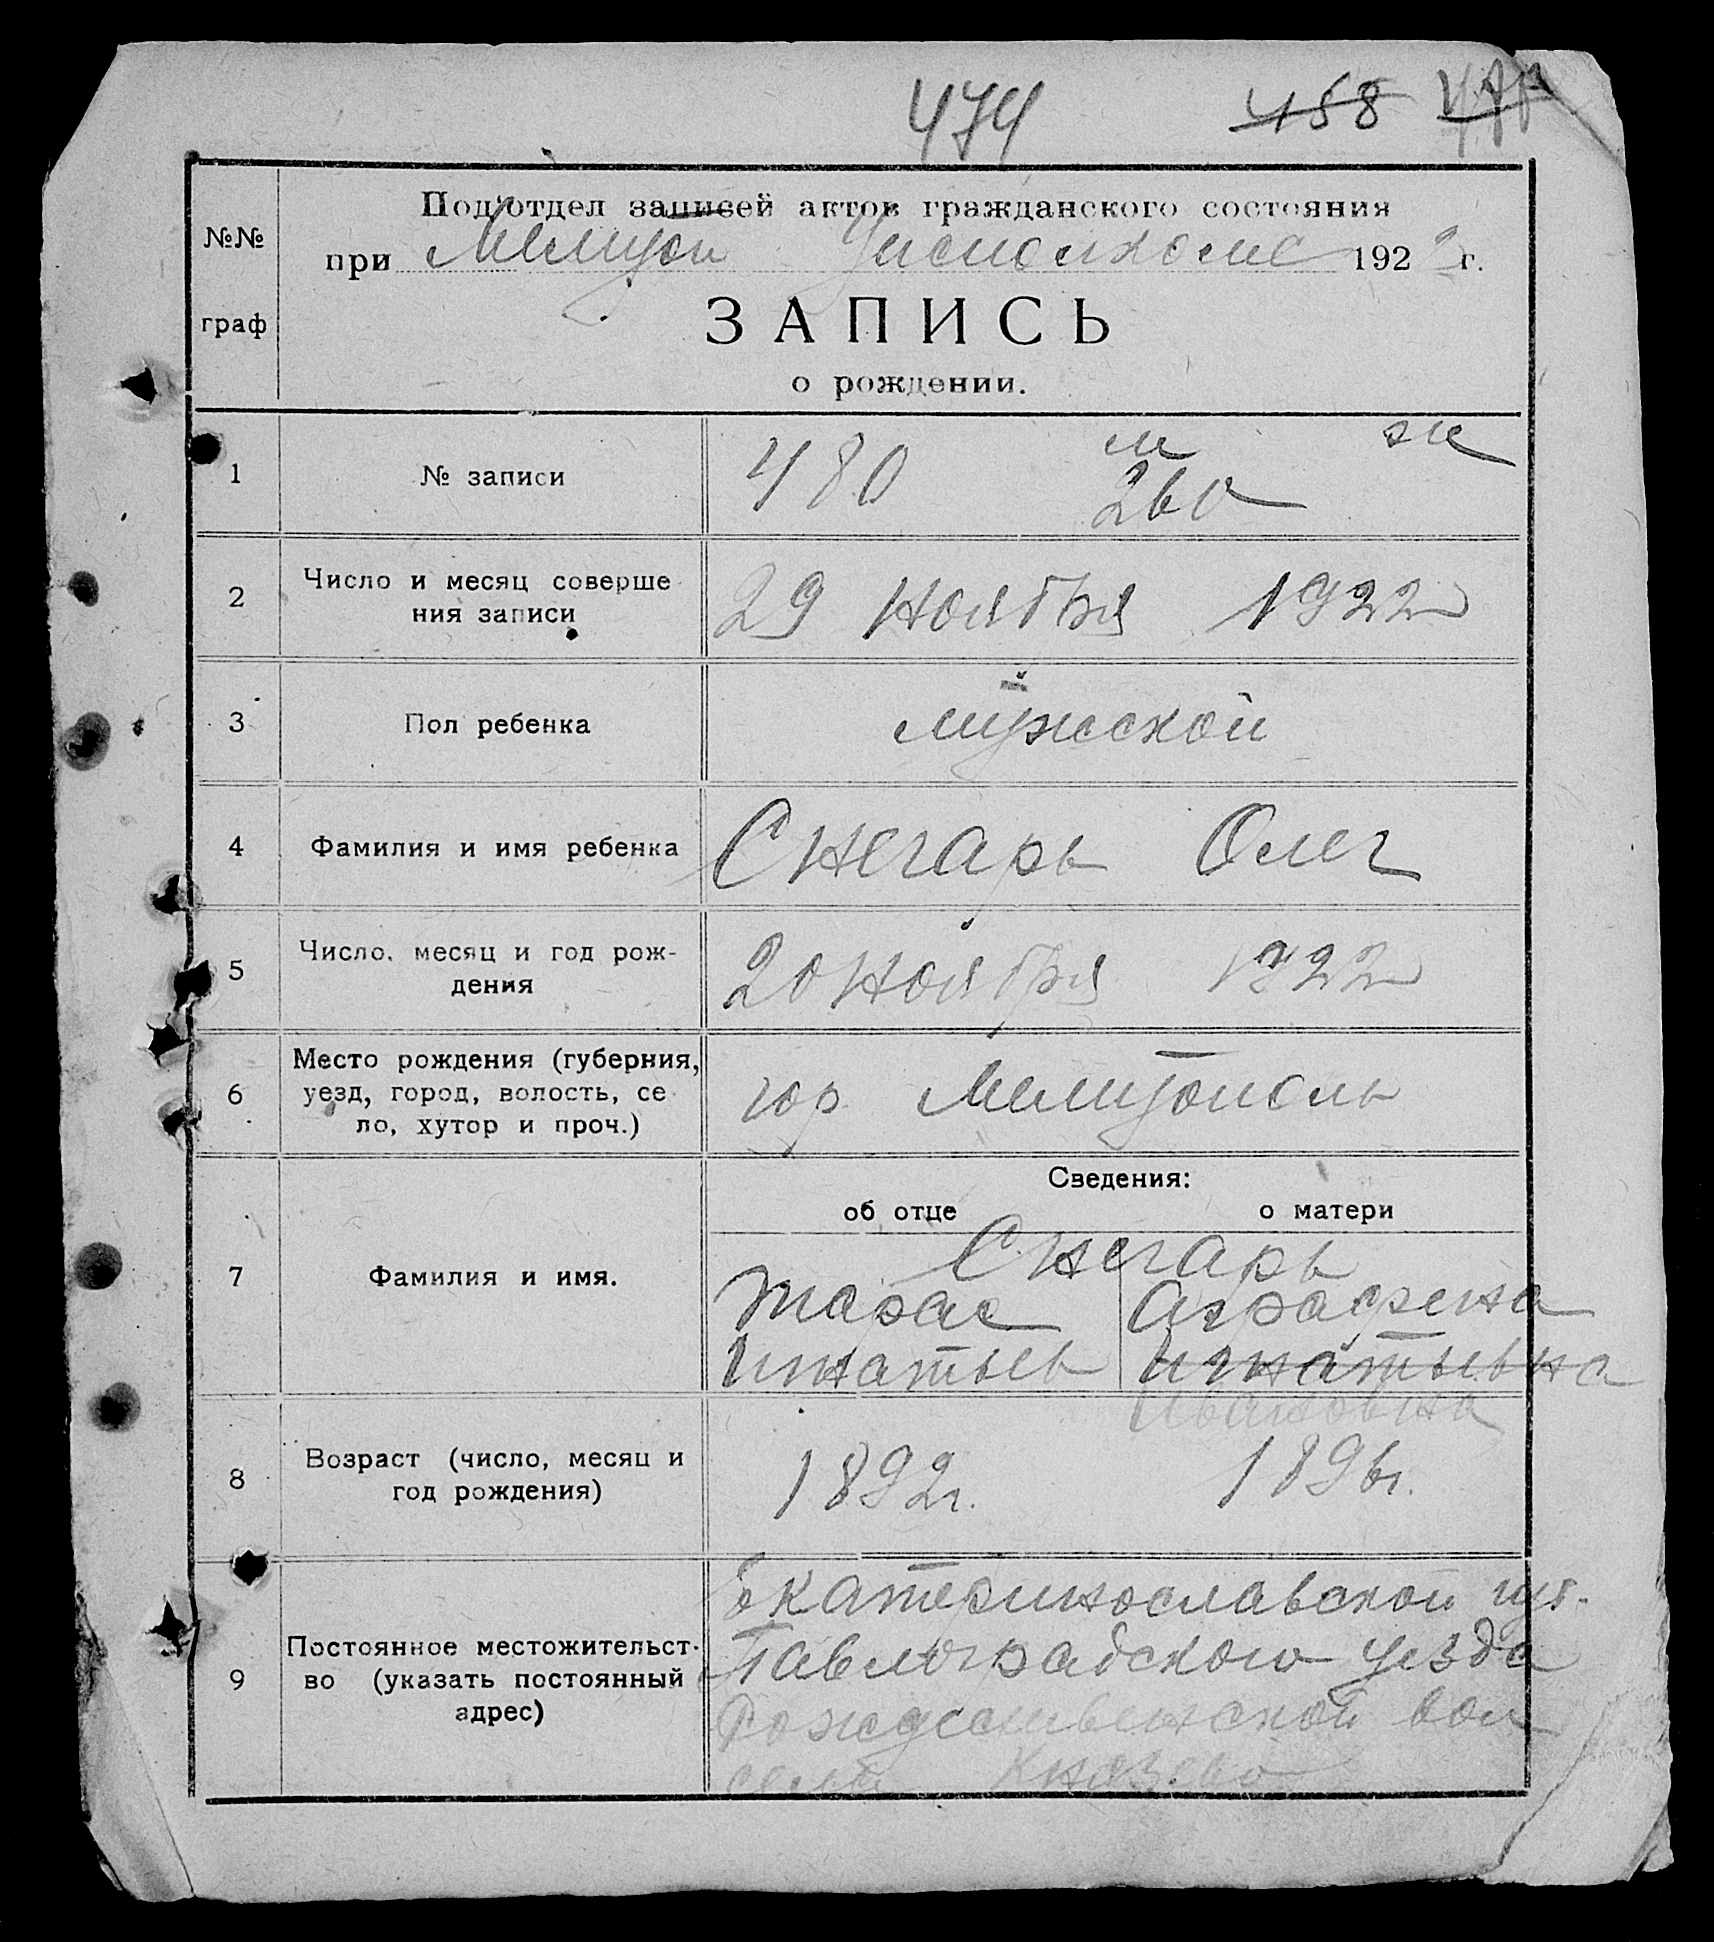 474 458
Подотдел записей актов гражданского состояния
№№
при Мелитоп Исполкоме 1922 г.
граф
ЗАПИСЬ
о рождении.
1 № записи 480 м 260 ж
2 Число и месяц соверше
ния записи
29 Ноября 1922
3 Пол ребенка мужской
4 Фамилия и имя ребенка Снегарь Олег
5 Число, месяц и год рож-
дения
20 Ноября 1922
6 Место рождения (губерния,
уезд, город, волость, се
ло, хутор и проч.)
гор Мелитополь
Сведения:
об отце о матери
7 Фамилия и имя.
Снегарь
Тарас Аграфена
Игнатьев Игнатьевна
Ивановна
8 Возраст (число, месяц и
год рождения)
1892г. 1896г.
9 Постоянное местожительст-
во (указать постоянный
адрес)
Екатеринославской губ.
Павлоградского уезда
Рождественской вол
село Князево